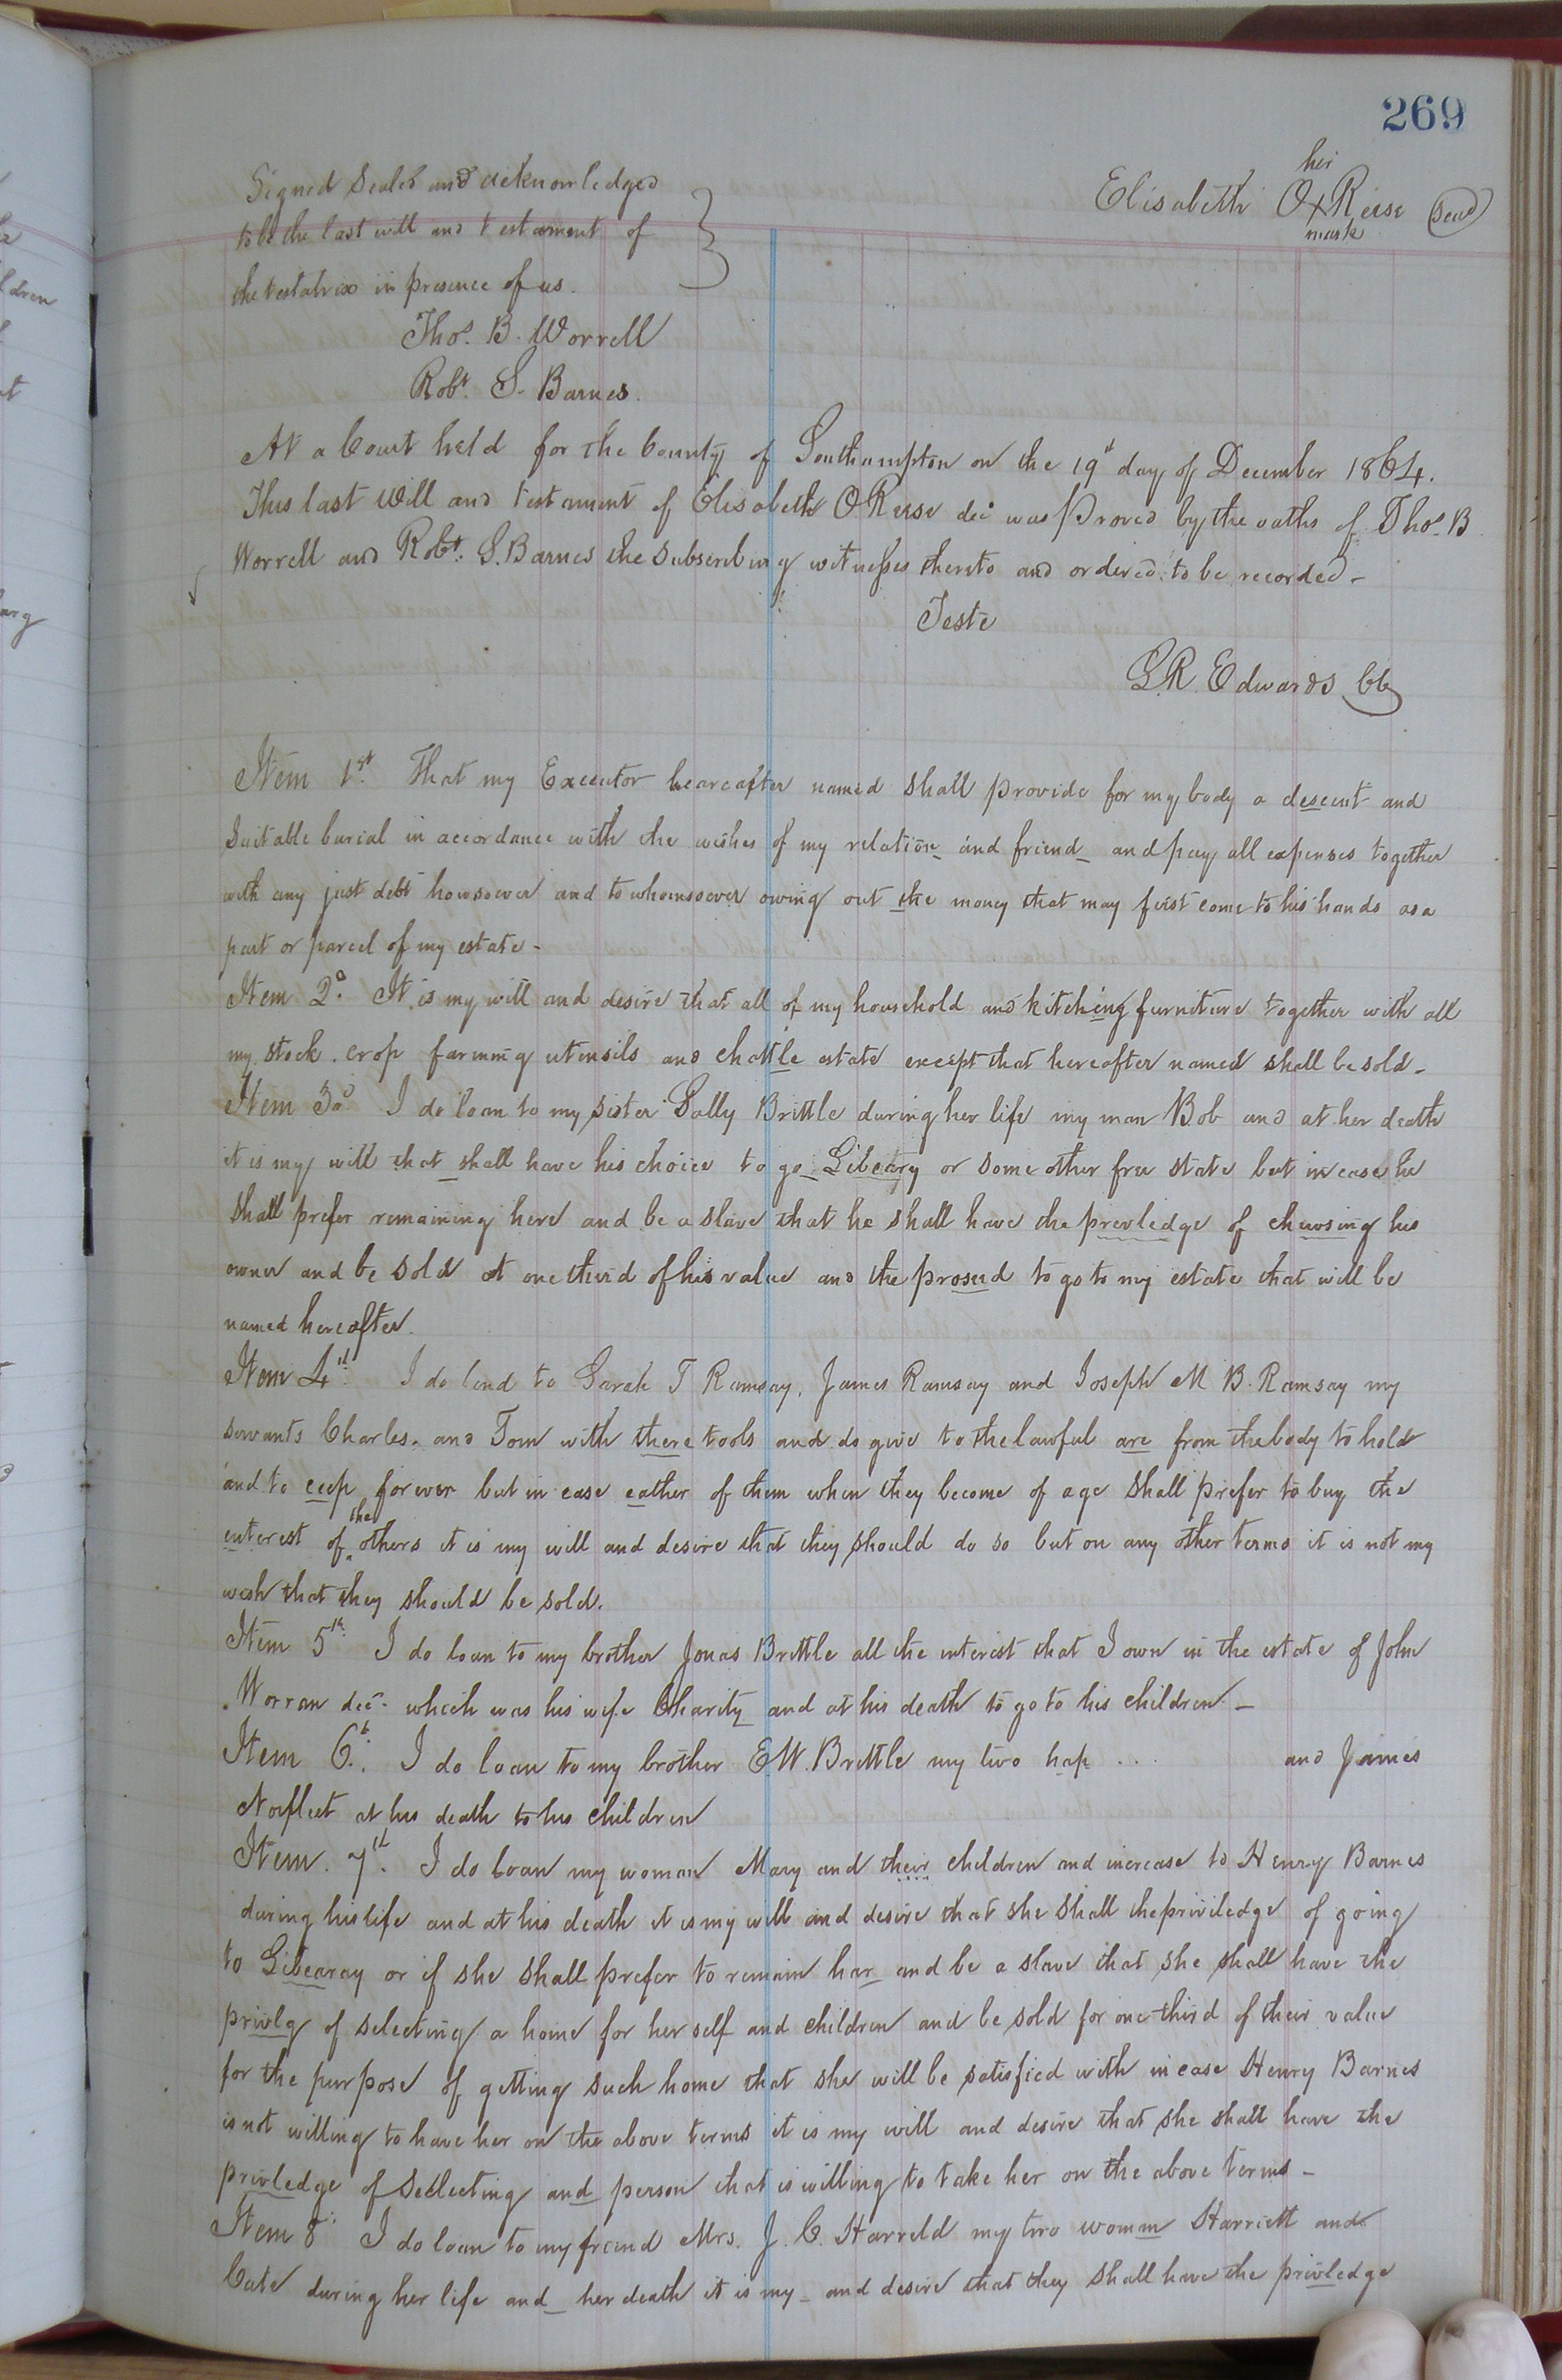 269
Signed Sealed and acknowledged
to be the last will and testament of
the testatrix in presence of us.
her
Elisabeth O X Reese (Seal)
mark
Thos. B. Worrell
Robt. S. Barnes.
At a Court held for the County of Southampton on the 19th day of December 1864.
This last Will and testament of Elisabeth O Reese decd was Proved by the oaths of Thos. B
Worrell and Robt. S. Barnes the subscribing witnesses thereto and ordered to be recorded -
Teste
L.R. Edwards CC
Item 1st. That my Executor hearcafter named shall provide for my body a descent and
suitable burial in accordance with the wishes of my relation and friend and pay all expenses together
with any just debt howsoever and to whomsoever owing out the money that may first come to his hands as a
part or parcel of my estate -
Item 2d. It is my will and desire that all of my household and kitching furniture together with all
my stock. crop farming utensils and chattle estate except that hereafter named shall be sold -
Item 3d I do loan to my sister Sally Brittle during her life my man Bob and at her death
it is my will that shall have his choice to go Libeary or some other free state but in case he
shall prefer remaining here and be a slave that he shall have the prevledge of chewsing his
owner and be sold at one third of his value and the prosud to go to my estate that will be
named hereafter.
Item 4th. I do lend to Sarah T Ramsay, James Ramsay and Joseph M B. Ramsay my
servants Charles. and Tom with there tools and do give to the lawful are from the body to hold
and to ceep forever but in case eather of them when they become of age shall prefer to buy the
enterest of the others it is my will and desire that they should do so but on any other terms it is not my
wish that they should be sold.
Item 5th. I do loan to my brother Jonas Brittle all the interest that I own in the estate of John
Worran dec. which was his wife Charity and at his death to go to his children -
Item 6th. I do loan to my brother E W. Brittle my two hap ... and James
Norfleet at his death to his children
Item. 7th. I do loan my woman Mary and their children and increase to Henry Barnes
during his life and at his death it is my will and desire that she shall the priviledge of going
to Libearay or if she shall prefer to remain har and be a slave that she shall have the
privlg of selecting a home for her self and children and be sold for one third of their value
for the purpose of getting such home that she will be satisfied with in case Henry Barnes
is not willing to have her on the above terms it is my will and desire that she shall have the
privledge of sellecting and person that is willing to take her on the above terms -
Item 8th I do loan to my freind Mrs. J. C. Harreld my two womm Harriett and
Cate during her life and her death it is my and desire that they shall have the privledge